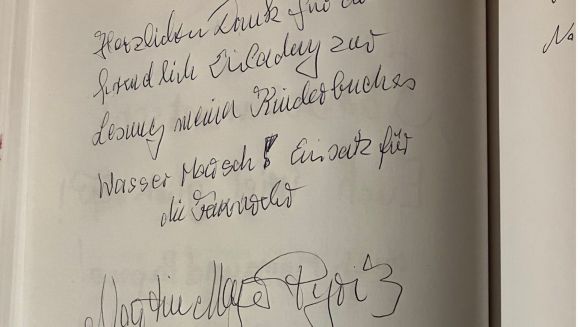 Herzlichen Dank für die
freundlich Einladung zur
Lesung meines Kinderbuches
Wasser Marsch! Einsatz für
die Feuerwehr